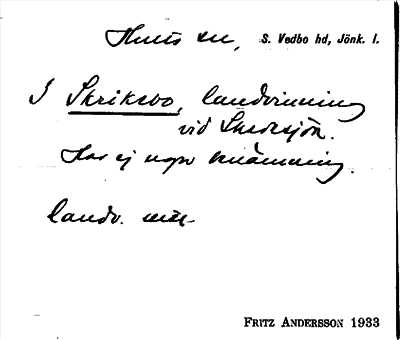 Hults sn, S. Vedbo hd, Jönk. l.
I Skriksbo, landvinning
vid Skedesjön.
Har ej ngn benämning.
landv.
FRITZ ANDERSSON 1933